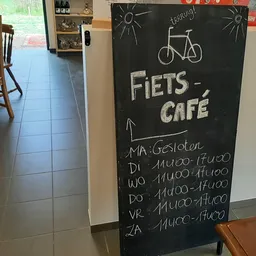 terrug!
FIETS-
CAFÉ
MA: Gesloten
DI 11U00-17U00
WO 11U00-17U00
DO 11U00-17U00
VR 11U00-17U00
ZA 11U00-17U00